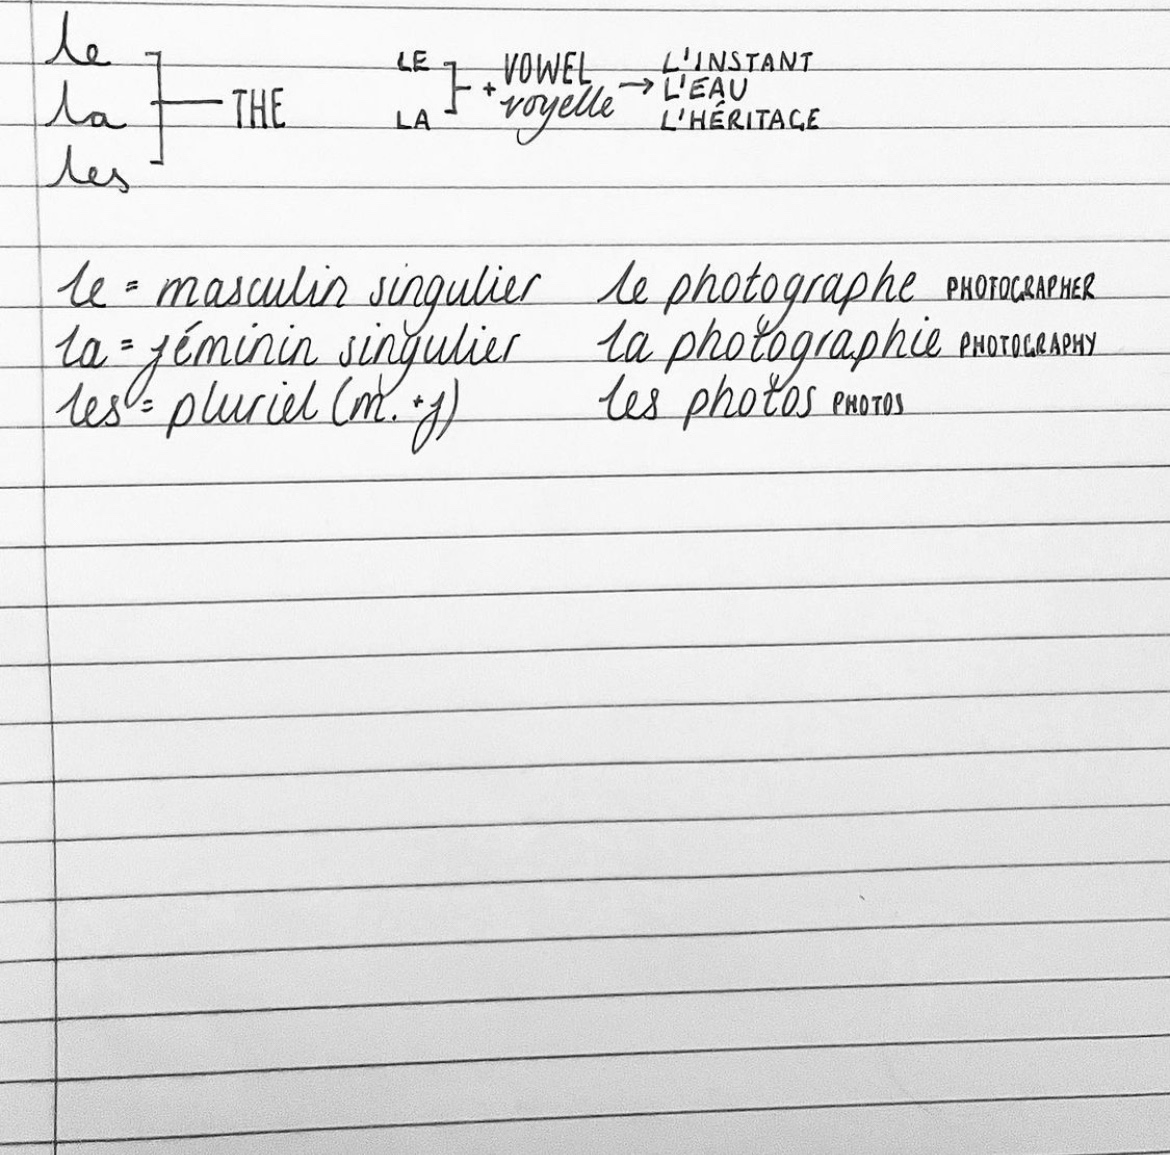 le
la
les
THE
LE
LA
+ VOWEL
voyelle
→ L'INSTANT
L'EAU
L'HÉRITAGE
le = masculin singulier le photographe PHOTOGRAPHER
la = féminin singulier la photographie PHOTOGRAPHY
les = pluriel (m. + f) les photos PHOTOS